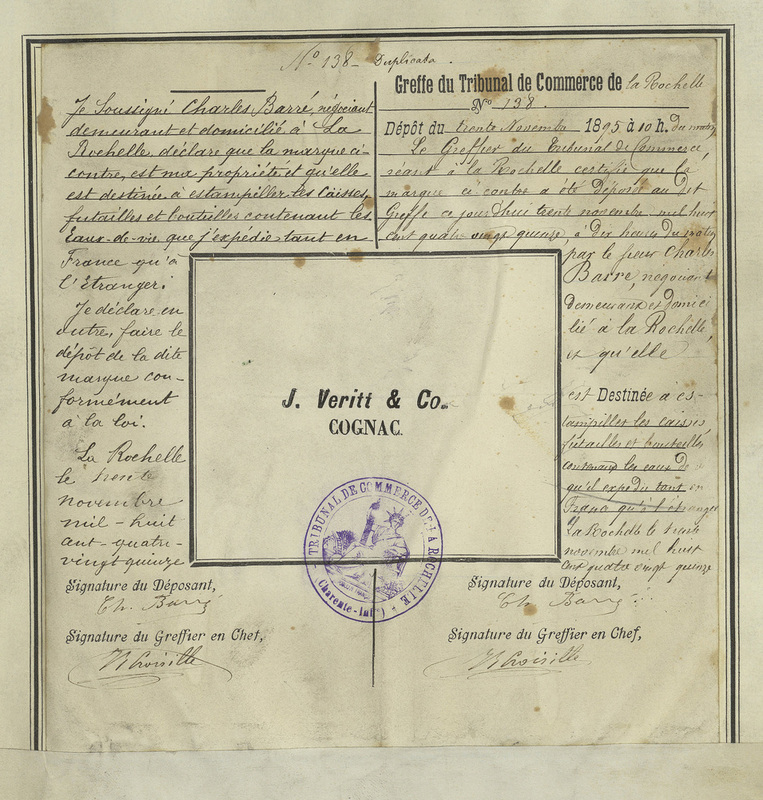 N° 138 – Duplicata.
Je Soussigné Charles Barré, négociant
demeurant et domicilié à La
Rochelle, déclare que la marque ci-
contre, est ma propriété et qu'elle
est destinée à estampiller les Caisses,
futailles et bouteilles contenant les
Eaux-de-vie que j'expédie tant en
France qu'à
l'Etranger.
Je déclare en
outre, faire le
dépôt de la dite
marque con-
formément
à la loi.
La Rochelle
le trente
novembre
mil-huit
cent-quatre-
vingt quinze
Signature du Déposant,
Ch. Barré
Signature du Greffier en Chef,
Greffe du Tribunal de Commerce de la Rochelle
N° 138.
Dépôt du trente Novembre 1895 à 10 h. du matin
Le Greffier du Tribunal de Commerce,
séant à la Rochelle certifie que la
marque ci contre a été déposée au dit
Greffe ce jourd'hui trente novembre mil huit
cent quatre vingt quinze, à dix heures du matin
par le sieur Charles
Barré, négociant
demeurant et domici
lié à la Rochelle
et qu'elle
est Destinée à es-
tampiller les caisses
futailles et bouteilles
contenant les eaux de
qu'il expédie tant en
France qu'à l'étranger
La Rochelle le trente
novembre mil huit
cent quatre vingt quinze
Signature du Déposant,
Ch. Barré
Signature du Greffier en Chef,
J. Veritt & Co.
COGNAC.
TRIBUNAL DE COMMERCE DE LA ROCHELLE
(Charente-Infre)